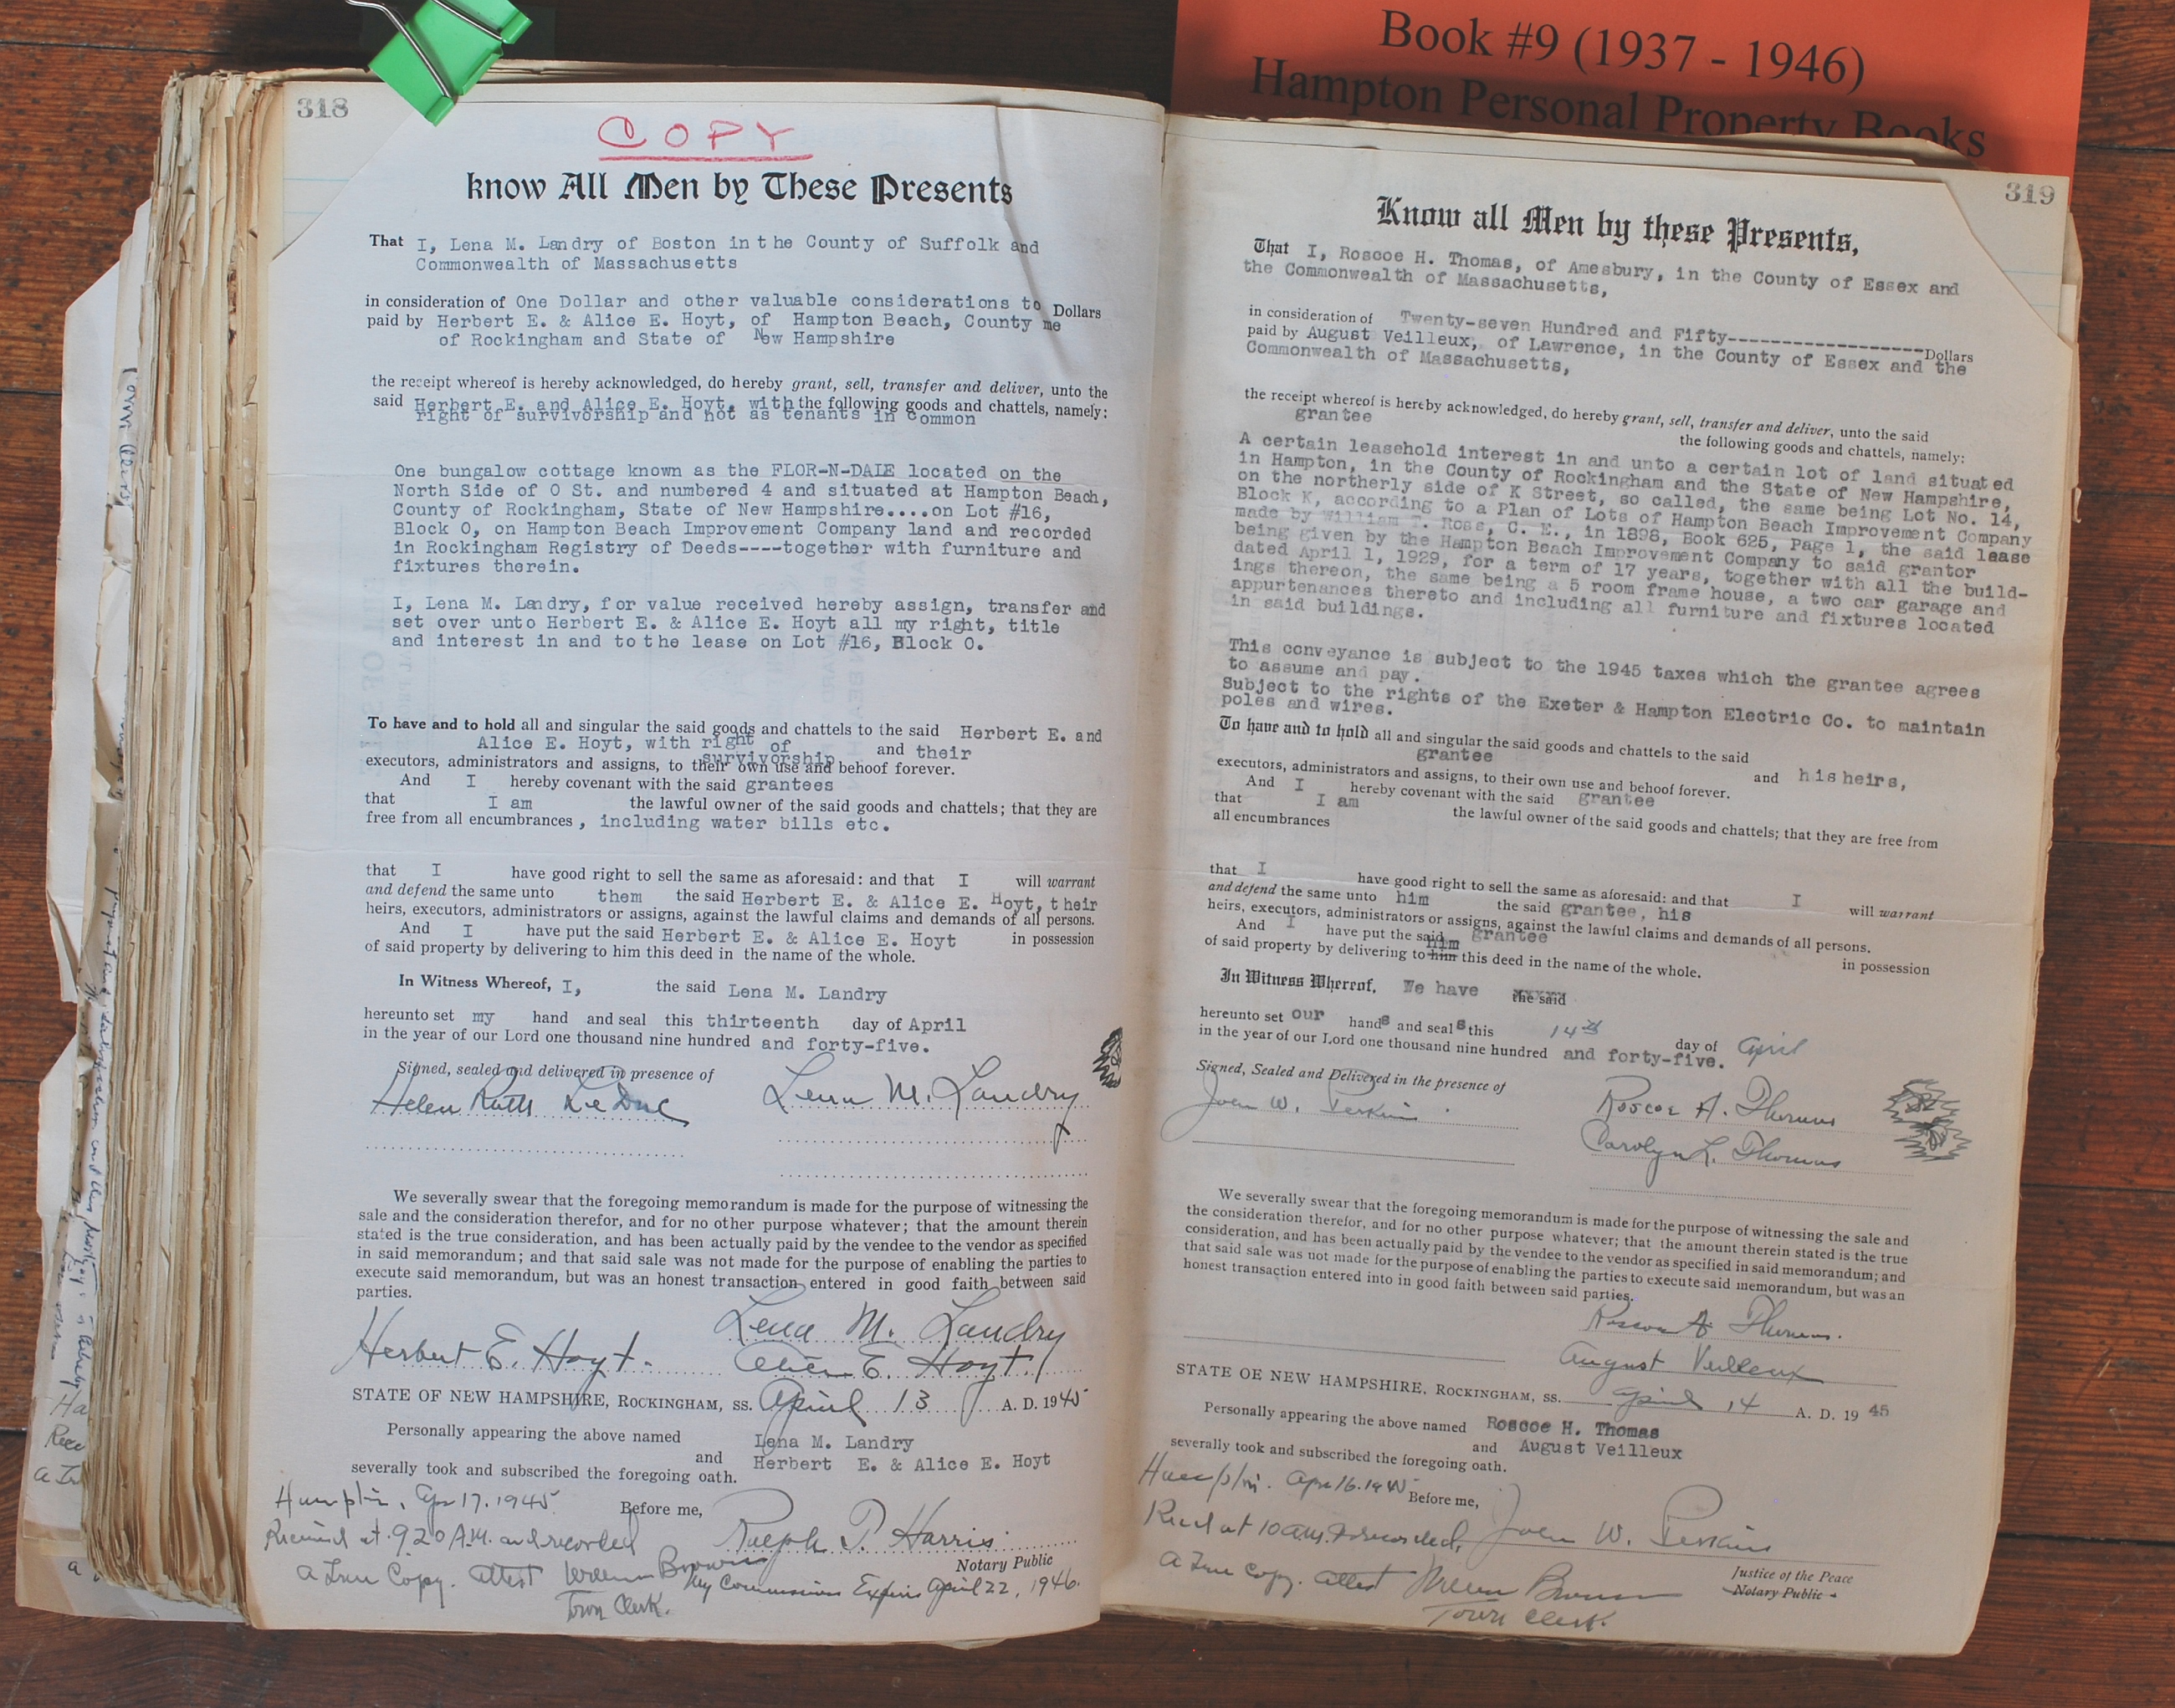 Book #9 (1937 - 1946)
Hampton Personal Property Books
318
COPY
know All Men by These Presents
That I, Lena M. Landry of Boston in the County of Suffolk and
Commonwealth of Massachusetts
in consideration of One Dollar and other valuable considerations to Dollars
paid by Herbert E. & Alice E. Hoyt, of Hampton Beach, County me
of Rockingham and State of New Hampshire
the receipt whereof is hereby acknowledged, do hereby grant, sell, transfer and deliver, unto the
said Herbert E. and Alice E. Hoyt, with the following goods and chattels, namely:
right of survivorship and not as tenants in common
One bungalow cottage known as the FLOR-N-DALE located on the
North Side of O St. and numbered 4 and situated at Hampton Beach,
County of Rockingham, State of New Hampshire....on Lot #16,
Block O, on Hampton Beach Improvement Company land and recorded
in Rockingham Registry of Deeds----together with furniture and
fixtures therein.
I, Lena M. Landry, for value received hereby assign, transfer and
set over unto Herbert E. & Alice E. Hoyt all my right, title
and interest in and to the lease on Lot #16, Block O.
To have and to hold all and singular the said goods and chattels to the said Herbert E. and
Alice E. Hoyt, with right of survivorship and their
executors, administrators and assigns, to their own use and behoof forever.
And I hereby covenant with the said grantees
that I am the lawful owner of the said goods and chattels; that they are
free from all encumbrances, including water bills etc.
that I have good right to sell the same as aforesaid: and that I will warrant
and defend the same unto them the said Herbert E. & Alice E. Hoyt, their
heirs, executors, administrators or assigns, against the lawful claims and demands of all persons.
And I have put the said Herbert E. & Alice E. Hoyt in possession
of said property by delivering to him this deed in the name of the whole.
In Witness Whereof, I, the said Lena M. Landry
hereunto set my hand and seal this thirteenth day of April
in the year of our Lord one thousand nine hundred and forty-five.
Signed, sealed and delivered in presence of
Helen Ruth LeDuc Lena M. Landry
We severally swear that the foregoing memorandum is made for the purpose of witnessing the
sale and the consideration therefor, and for no other purpose whatever; that the amount therein
stated is the true consideration, and has been actually paid by the vendee to the vendor as specified
in said memorandum; and that said sale was not made for the purpose of enabling the parties to
execute said memorandum, but was an honest transaction entered in good faith between said
parties.
Lena M. Landry
Herbert E. Hoyt. Alice E. Hoyt
STATE OF NEW HAMPSHIRE, ROCKINGHAM, SS. April 13 A. D. 1945
Personally appearing the above named Lena M. Landry
and Herbert E. & Alice E. Hoyt
severally took and subscribed the foregoing oath.
Hampton, Apr 17. 1945 Before me,
Received at 920 A.M. and recorded Ralph P. Harris
Notary Public
A True Copy. Attest William Brown My Commission Expires April 22, 1946.
Town Clerk.
319
Know all Men by these Presents,
That I, Roscoe H. Thomas, of Amesbury, in the County of Essex and
the Commonwealth of Massachusetts,
in consideration of Twenty-seven Hundred and Fifty------------------Dollars
paid by August Veilleux, of Lawrence, in the County of Essex and the
Commonwealth of Massachusetts,
the receipt whereof is hereby acknowledged, do hereby grant, sell, transfer and deliver, unto the said
grantee the following goods and chattels, namely:
A certain leasehold interest in and unto a certain lot of land situated
in Hampton, in the County of Rockingham and the State of New Hampshire,
on the northerly side of K Street, so called, the same being Lot No. 14,
Block K, according to a Plan of Lots of Hampton Beach Improvement Company
made by William T. Ross, C. E., in 1898, Book 625, Page 1, the said lease
being given by the Hampton Beach Improvement Company to said grantor
dated April 1, 1929, for a term of 17 years, together with all the build-
ings thereon, the same being a 5 room frame house, a two car garage and
appurtenances thereto and including all furniture and fixtures located
in said buildings.
This conveyance is subject to the 1945 taxes which the grantee agrees
to assume and pay.
Subject to the rights of the Exeter & Hampton Electric Co. to maintain
poles and wires.
To have and to hold all and singular the said goods and chattels to the said
grantee and his heirs,
executors, administrators and assigns, to their own use and behoof forever.
And I hereby covenant with the said grantee
that I am the lawful owner of the said goods and chattels; that they are free from
all encumbrances
that I have good right to sell the same as aforesaid: and that I will warrant
and defend the same unto him the said grantee, his
heirs, executors, administrators or assigns, against the lawful claims and demands of all persons.
And I have put the said grantee in possession
of said property by delivering to him him this deed in the name of the whole.
In Witness Whereof, We have the said
hereunto set our hands and seals this 14th day of April
in the year of our Lord one thousand nine hundred and forty-five.
Signed, Sealed and Delivered in the presence of
John W. Perkins Roscoe H. Thomas
Carolyn L. Thomas
We severally swear that the foregoing memorandum is made for the purpose of witnessing the sale and
the consideration therefor, and for no other purpose whatever; that the amount therein stated is the true
consideration, and has been actually paid by the vendee to the vendor as specified in said memorandum; and
that said sale was not made for the purpose of enabling the parties to execute said memorandum, but was an
honest transaction entered into in good faith between said parties.
Roscoe H. Thomas.
August Veilleux
STATE OE NEW HAMPSHIRE, ROCKINGHAM, SS. April 14 A. D. 1945
Personally appearing the above named Roscoe H. Thomas
and August Veilleux
severally took and subscribed the foregoing oath.
Hampton. Apr 16. 1945 Before me,
Recd at 10 A.M. & recorded, John W. Perkins
Justice of the Peace
Notary Public
A True Copy. Attest William Brown
Town Clerk.